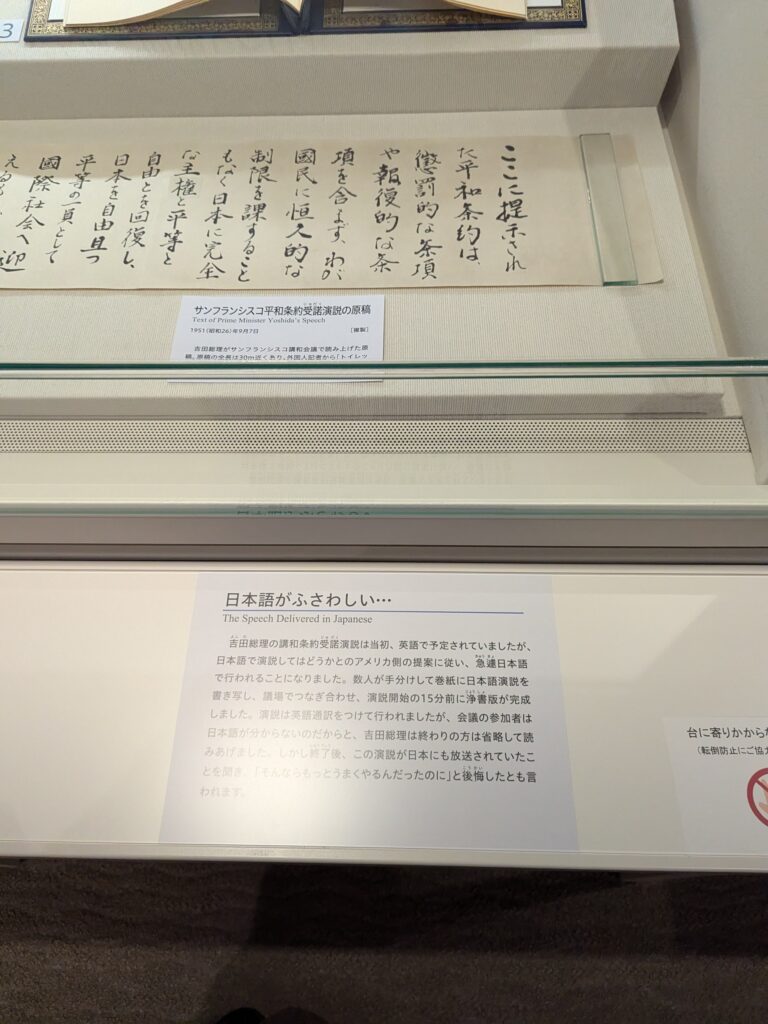 3
ここに提示され
た平和条約は、
懲罰的な条項
や報復的な条
項を含まず、わが
國民に恒久的な
制限を課すること
もなく日本に完全
な主権と平等と
自由とを回復し、
日本を自由且つ
平等の一員として
國際社会へ迎
サンフランシスコ平和条約受諾演説の原稿
Text of Prime Minister Yoshida's Speech
1951(昭和26)年9月7日 [複製]
吉田総理がサンフランシスコ講和会議で読み上げた原
稿。原稿の全長は30m近くあり、外国人記者から「トイレッ
日本語がふさわしい…
The Speech Delivered in Japanese
吉田総理の講和条約受諾演説は当初、英語で予定されていましたが、
日本語で演説してはどうかとのアメリカ側の提案に従い、急遽日本語
で行われることになりました。数人が手分けして巻紙に日本語演説を
書き写し、議場でつなぎ合わせ、演説開始の15分前に浄書版が完成
しました。演説は英語通訳をつけて行われましたが、会議の参加者は
日本語が分からないのだからと、吉田総理は終わりの方は省略して読
みあげました。しかし終了後、この演説が日本にも放送されていたこ
とを聞き、「そんならもっとうまくやるんだったのに」と後悔したとも言
われます。
台に寄りかから
(転倒防止にご協